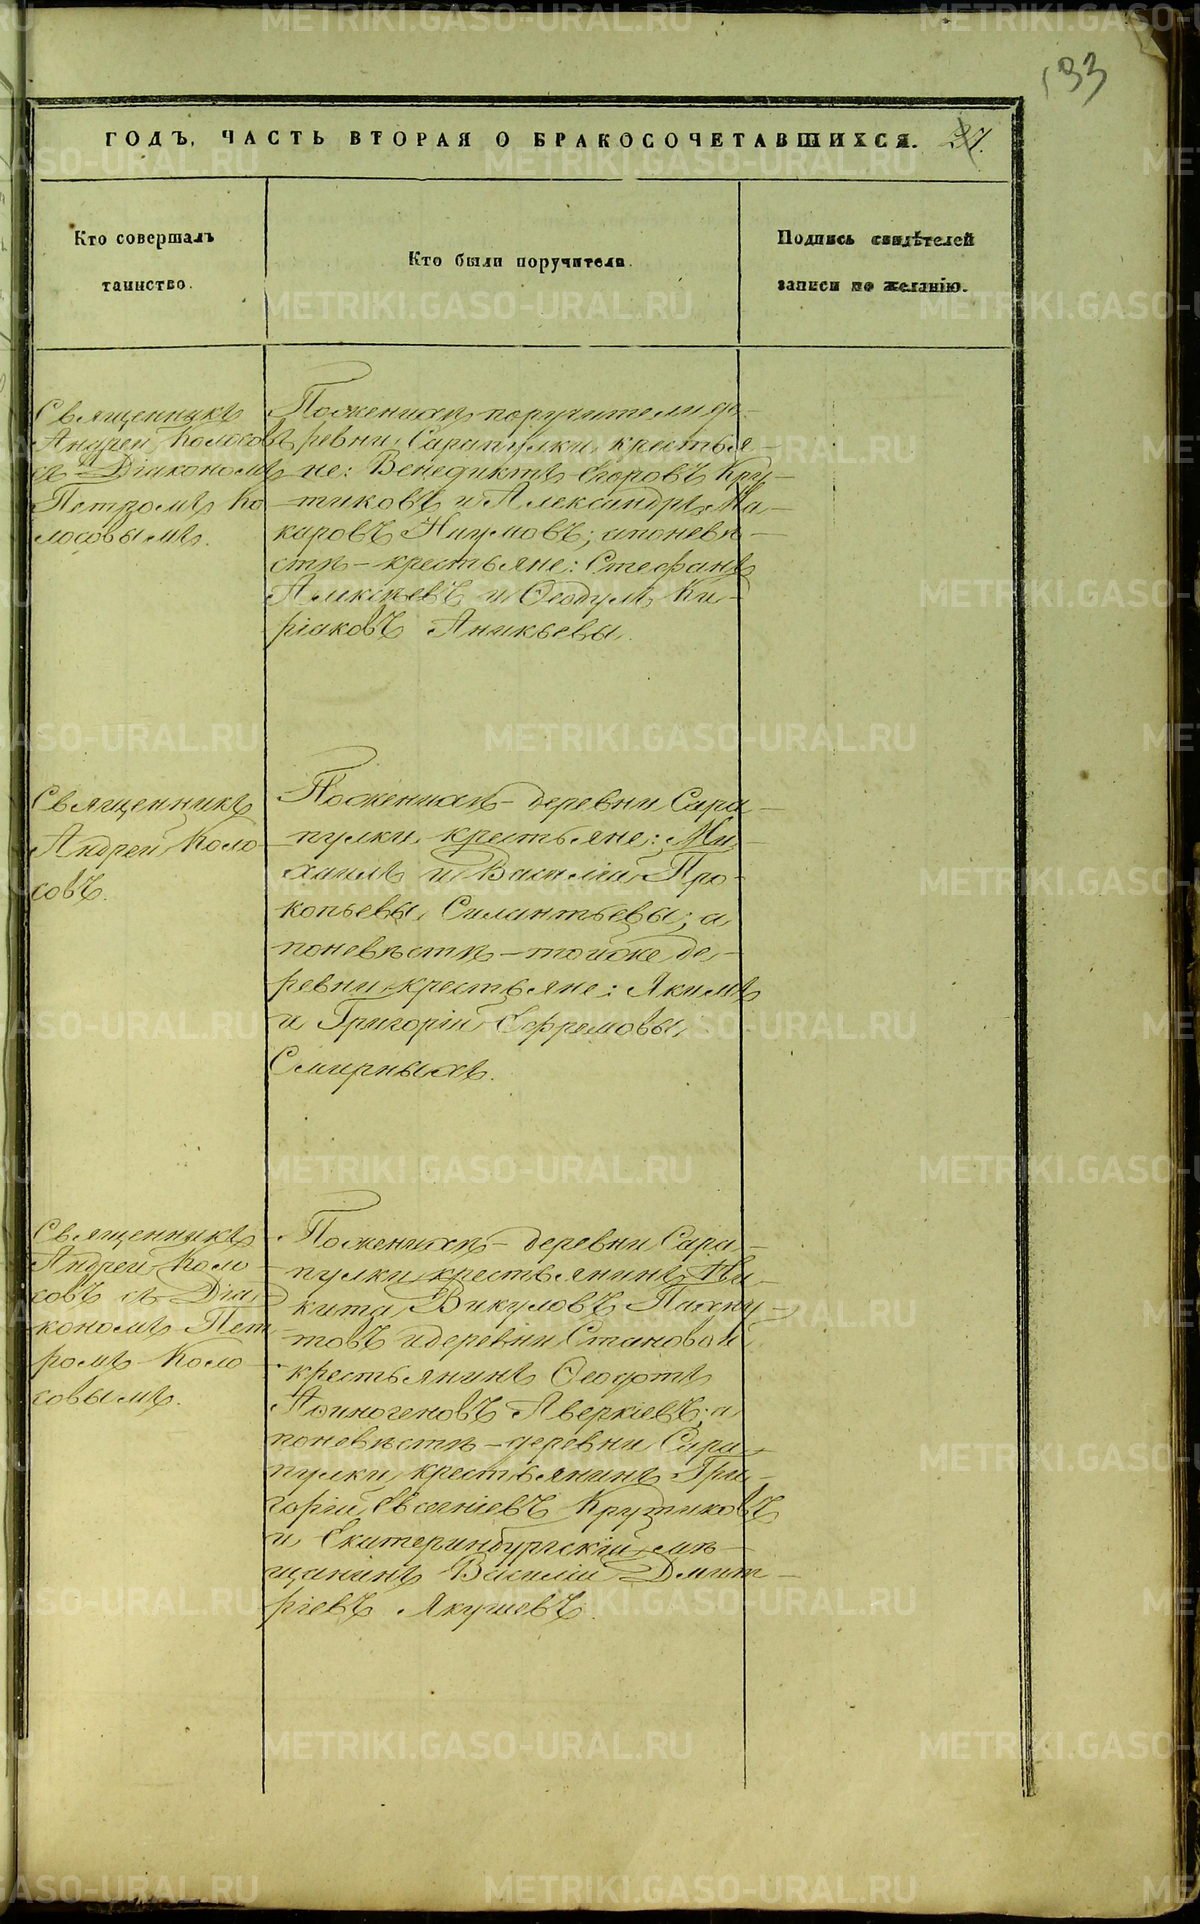 133
ГОДЪ, ЧАСТЬ ВТОРАЯ О БРАКОСОЧЕТАВШИХСЯ. 37.
Кто совершалъ
таинство.
Кто были поручители.
Подпись свидѣтелей
записи по желанію.
Священникъ
Андрей Колосовъ
съ Діакономъ
Петромъ Ко
лосовымъ.
По женихѣ поручители де-
ревни Сарапулки крестья-
не: Венедиктъ Егоровъ Кру-
тиковъ и Александръ Ма-
каровъ Наумовъ; а по невѣ-
стѣ - крестьяне: Стефанъ
Алексѣевъ и Ѳеодулъ Ки-
ріаковъ Аникьевы.
Священникъ
Андрей Коло
совъ.
По женихѣ - деревни Сара-
пулки крестьяне: Ми-
хаилъ и Василій Про-
копьевы Силантьевы; а
по невѣстѣ - той же де-
ревни крестьяне: Якимъ
и Григорій Ефремовы
Смирныхъ.
Священникъ
Андрей Коло-
совъ съ Діа-
кономъ Пет
ромъ Коло-
совымъ.
По женихѣ - деревни Сара-
пулки крестьянинъ Ни-
кита Викуловъ Пахну-
товъ и деревни Становой
крестьянинъ Ѳеофтъ
Аѳиногеновъ Аверкіевъ; а
по невѣстѣ - деревни Сара-
пулки крестьянинъ Гри-
горій Евсегніевъ Крутиковъ
и Екатеринбургскій мѣ-
щанинъ Василій Дмит-
ріевъ Якушевъ.
METRIKI.GASO-URAL.RU